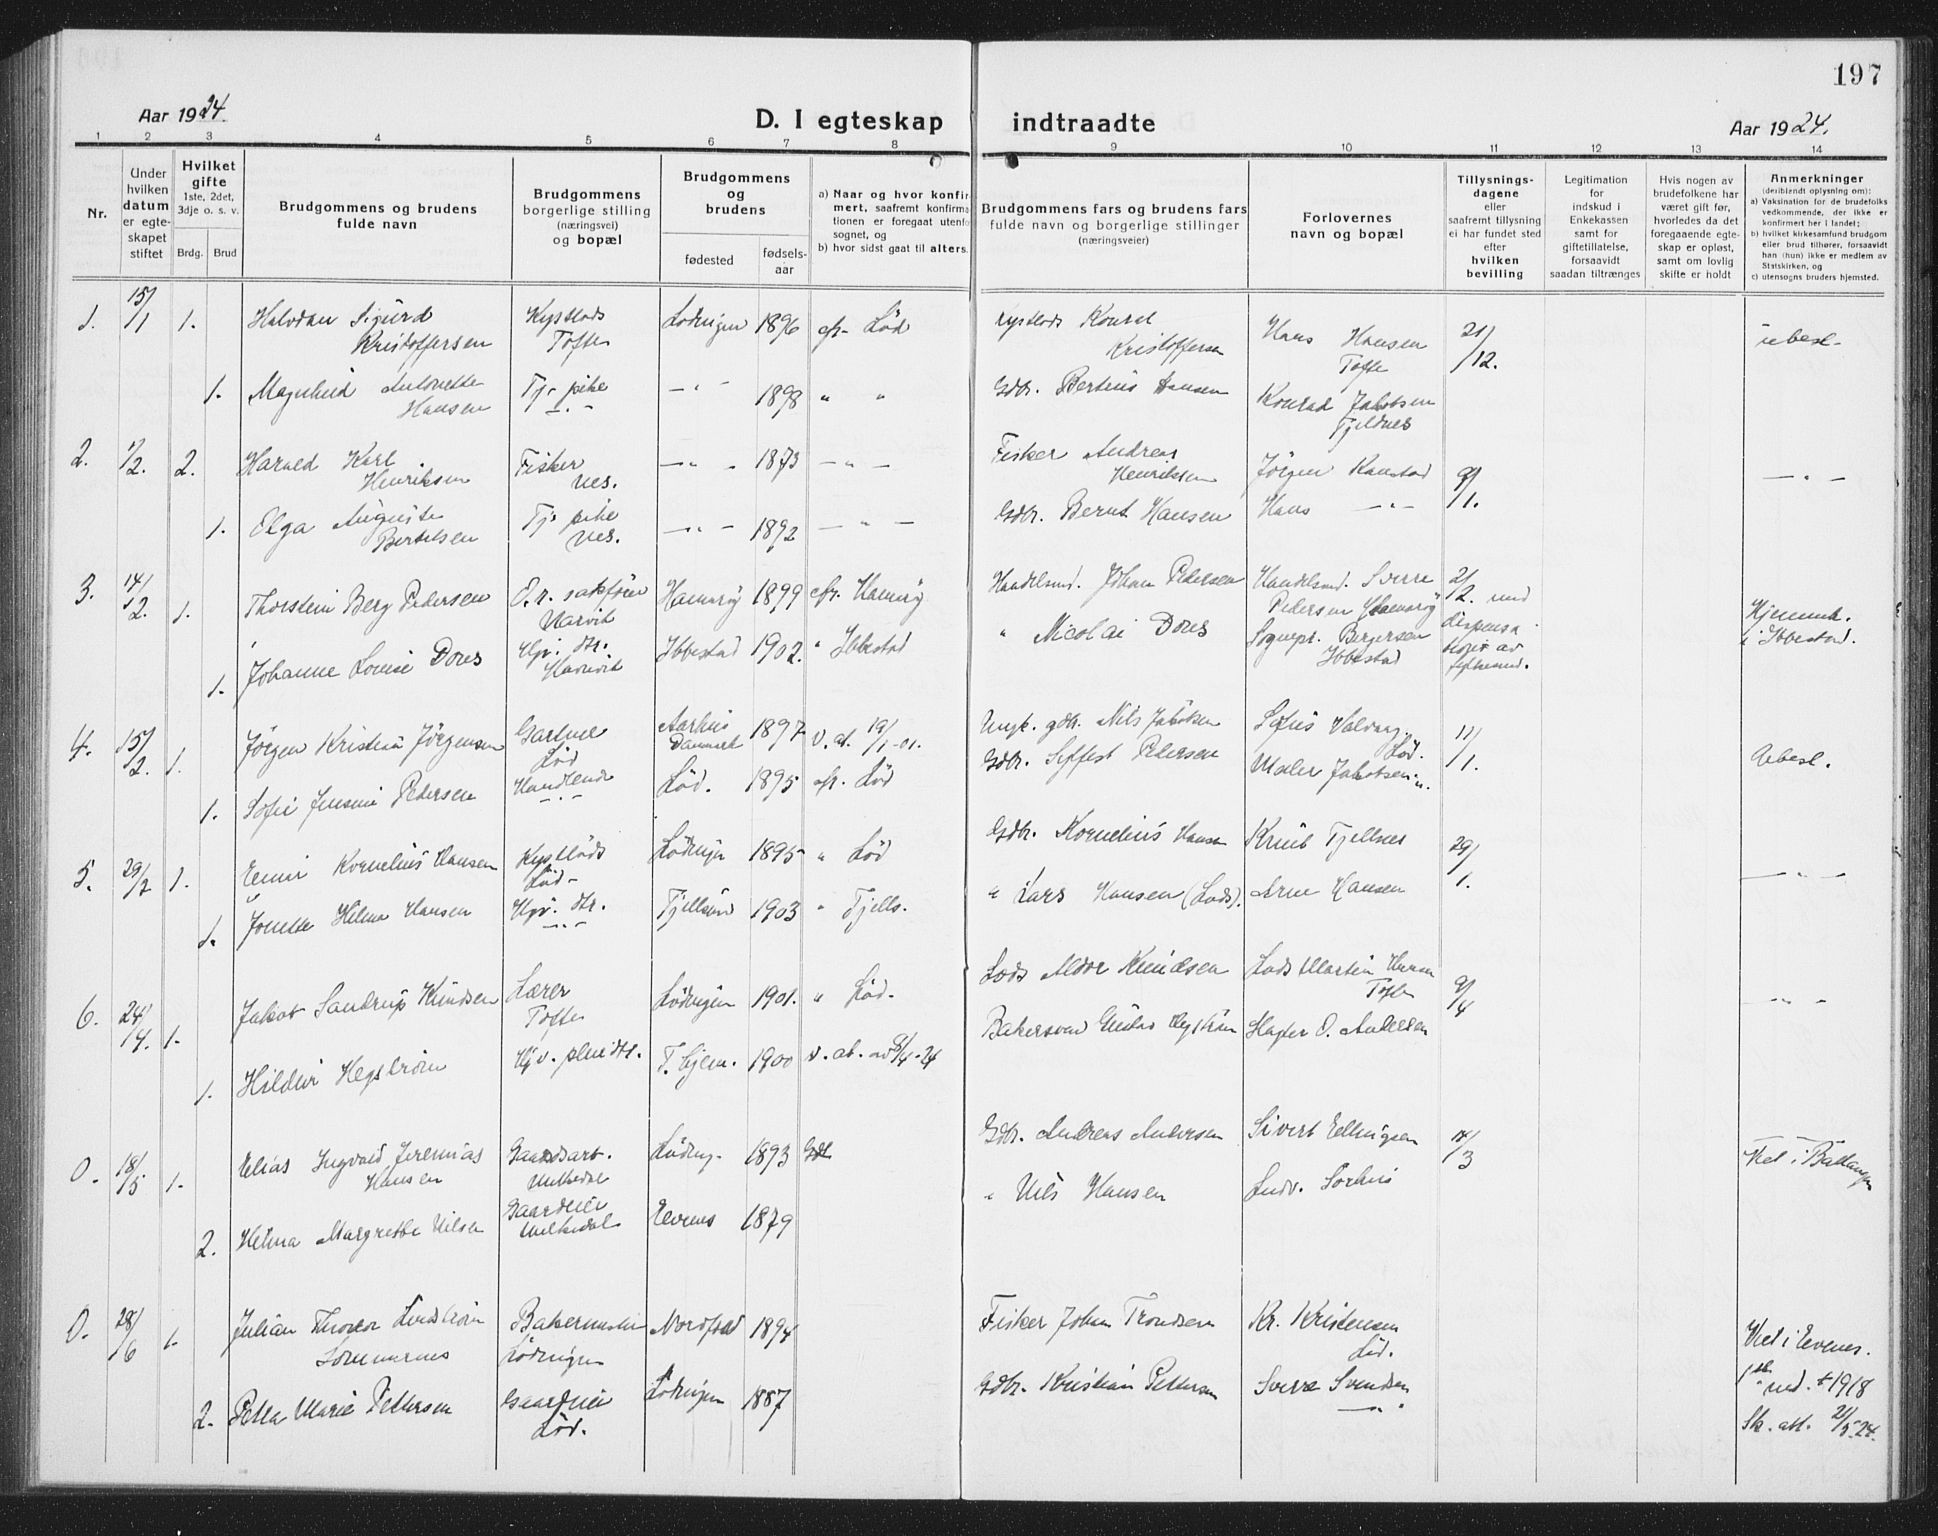 197
Aar 1924.
D. I egteskap indtraadte
Aar 1924.
1 2 3 4 5 6 7 8 9 10 11 12 13 14
Nr.
Under hvilken datum er egte-skapet stiftet
Hvilket gifte
1ste, 2det, 3dje o. s. v.
Brdg. Brud
Brudgommens og brudens fulde navn
Brudgommens borgerlige stilling (næringsvei) og bopæl
Brudgommens og brudens
fødested
fødsels-aar
a) Naar og hvor konfir
mert, saafremt konfirma
tionen er foregaat utenfo
sognet, og
b) hvor sidst gaat til alters.
Brudgommens fars og brudens fars
fulde navn og borgerlige stillinger
(næringsveier)
Forlovernes
navn og bopæl
Tillysnings-
dagene
eller
saafremt tillysning
ei har fundet sted
efter
hvilken
bevilling
Legitimation
for
indskud i
Enkekassen
samt for
giftetillatelse,
forsaavidt
saadan tiltrænges
Hvis nogen av
brudefolkene har
været gift før,
hvorledes da det
foregaaende egte-
skap er opløst,
samt om lovlig
skifte er holdt
Anmerkninger
(deriblandt oplysning om):
a) Vaksination for de brudefolks
vedkommende, der ikke er
konfirmert her i landet;
b) hvilket kirkesamfund brudgom
eller brud tilhører, forsaavidt
han (hun) ikke er medlem av
Statskirken, og
c) utensogns bruders hjemsted.
1. 15/1 1. Halvdan Sigurd Kristoffersen Kystlods Tofte Lødingen 1896 Lød Kystlods Konrad Kristoffersen Hans Hansen Tofte 21/12. ubesl.
1. Magnhild Antonette Hansen Tj. pike 1898 Gdbr. Bertius Hansen Konrad Jakobsen Fjeldnes
2. 1/2. 2. Harald Karl Henriksen Fisker Nes. 1873 Fisker Andreas Henriksen Jørgen Kanstad 9/1.
1. Olga Auguste Bertelsen Tj. pike Nes. 1892 Gdbr. Bernt Hansen Hans
3. 14/2. 1. Thorstein Berg Pedersen O.r. sakfører Narvik Hamarøy 1899 Hamarøy Handelsmd. Johan Pedersen Handelsmd. Sverre Pedersen Hamarøy 2/2. med dispensation av fylkesmd. Hjemmeh. i Ibbestad.
1. Johanne Louise Dons Ibbestad 1902. Ibbestad " Nicolai Dons Sognepr. Bergersen Ibbestad
4. 15/2. 1. Jørgen Kristian Jørgensen Gartner Lød Aarhus Danmark 1897 v. at. 19/1-01. gdbr. Nils Jakobsen Sofus Lød. 11/1. Ubesl.
1. Sofie Jensine Pedersen Handlende Lød. 1895 Lød Gdbr. Pedersen Maler Jakobsen
5. 29/2 1. Einar Kornelius Hansen Kystlods Lød. Lødingen 1895 " Lød Gdbr. Kornelius Hansen Knut Fjellnes 29/1.
1. Jonette Helma Hansen Hjv. dtr. Fjellsund 1903 " Fjells. " Lars Hansen (Lods). Arne Hansen
6. 24/4. 1. Jakob Sandrup Knudsen Lærer Tofte Lødingen 1901. " Lød. Lods Aldor Knudsen Lods Martin Tofte 9/4
1. Hildur Hegstrøm 1900 v. at. av 8/4-24 O. Andersen
0. 18/5 1. Elias Ingvald Jeremias Hansen Gaardsarb. Løding. 1893 Gdbr. Andreas Andersen Sivert Ellingsen 14/3 Viet i Ballangen
2. Helma Margrethe Nilsen Evenes 1879 " Nils Hansen
0. 28/6 1. Julian Thodor Lindstrøm Sommernes Lødingen 1894 Fisker Johan Trondsen Kr. Kristensen Lød. Viet i Evenes.
2. Petra Marie Pettersen Lød. Lødingen 1887 Gdbr. Kristian Pettersen Sverre Svendsen † 1918
Sk. att. 21/5-24.